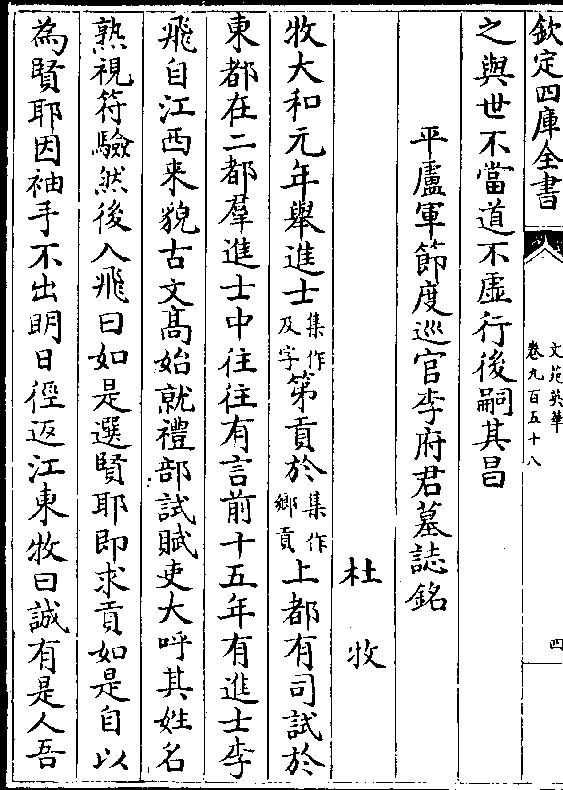 欽定四庫全書
文苑英華
卷九百五十八
四
之與世不當道不虛行後嗣其昌
平盧軍節度巡官李府君墓誌銘
杜牧
牧大和元年舉進士集作及字第貢於集作鄉貢上都有司試於
東都在二都羣進士中往往有言前十五年有進士李
飛自江西來貌古文高始就禮部試賦吏大呼其姓名
熟視符驗然後入飛曰如是選賢耶即求貢如是自以
為賢耶因袖手不出明日徑返江東牧曰誠有是人吾